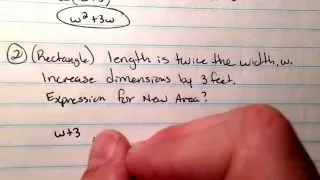 w²+3w
② (Rectangle) length is twice the width, w.
Increase dimensions by 3 feet.
Expression for New Area?
w+3